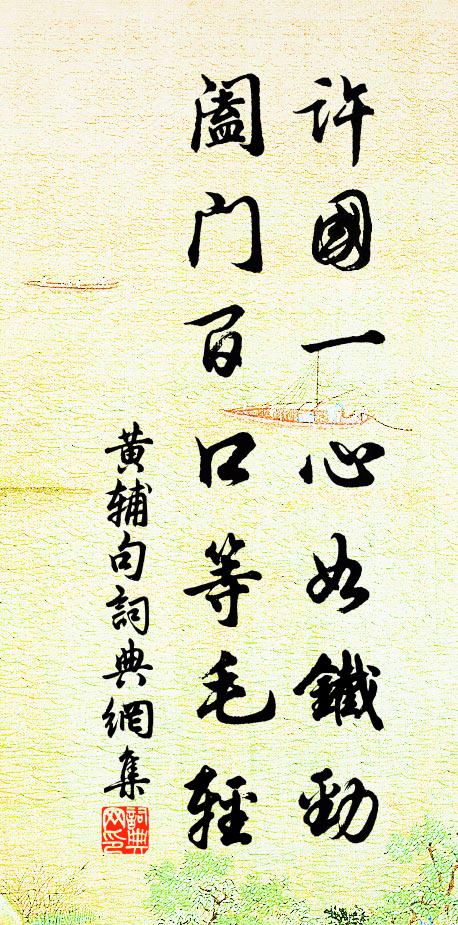 許國一心如鐵勁
闔门百口等毛輕
黄辅句詞典網集
詞典网印